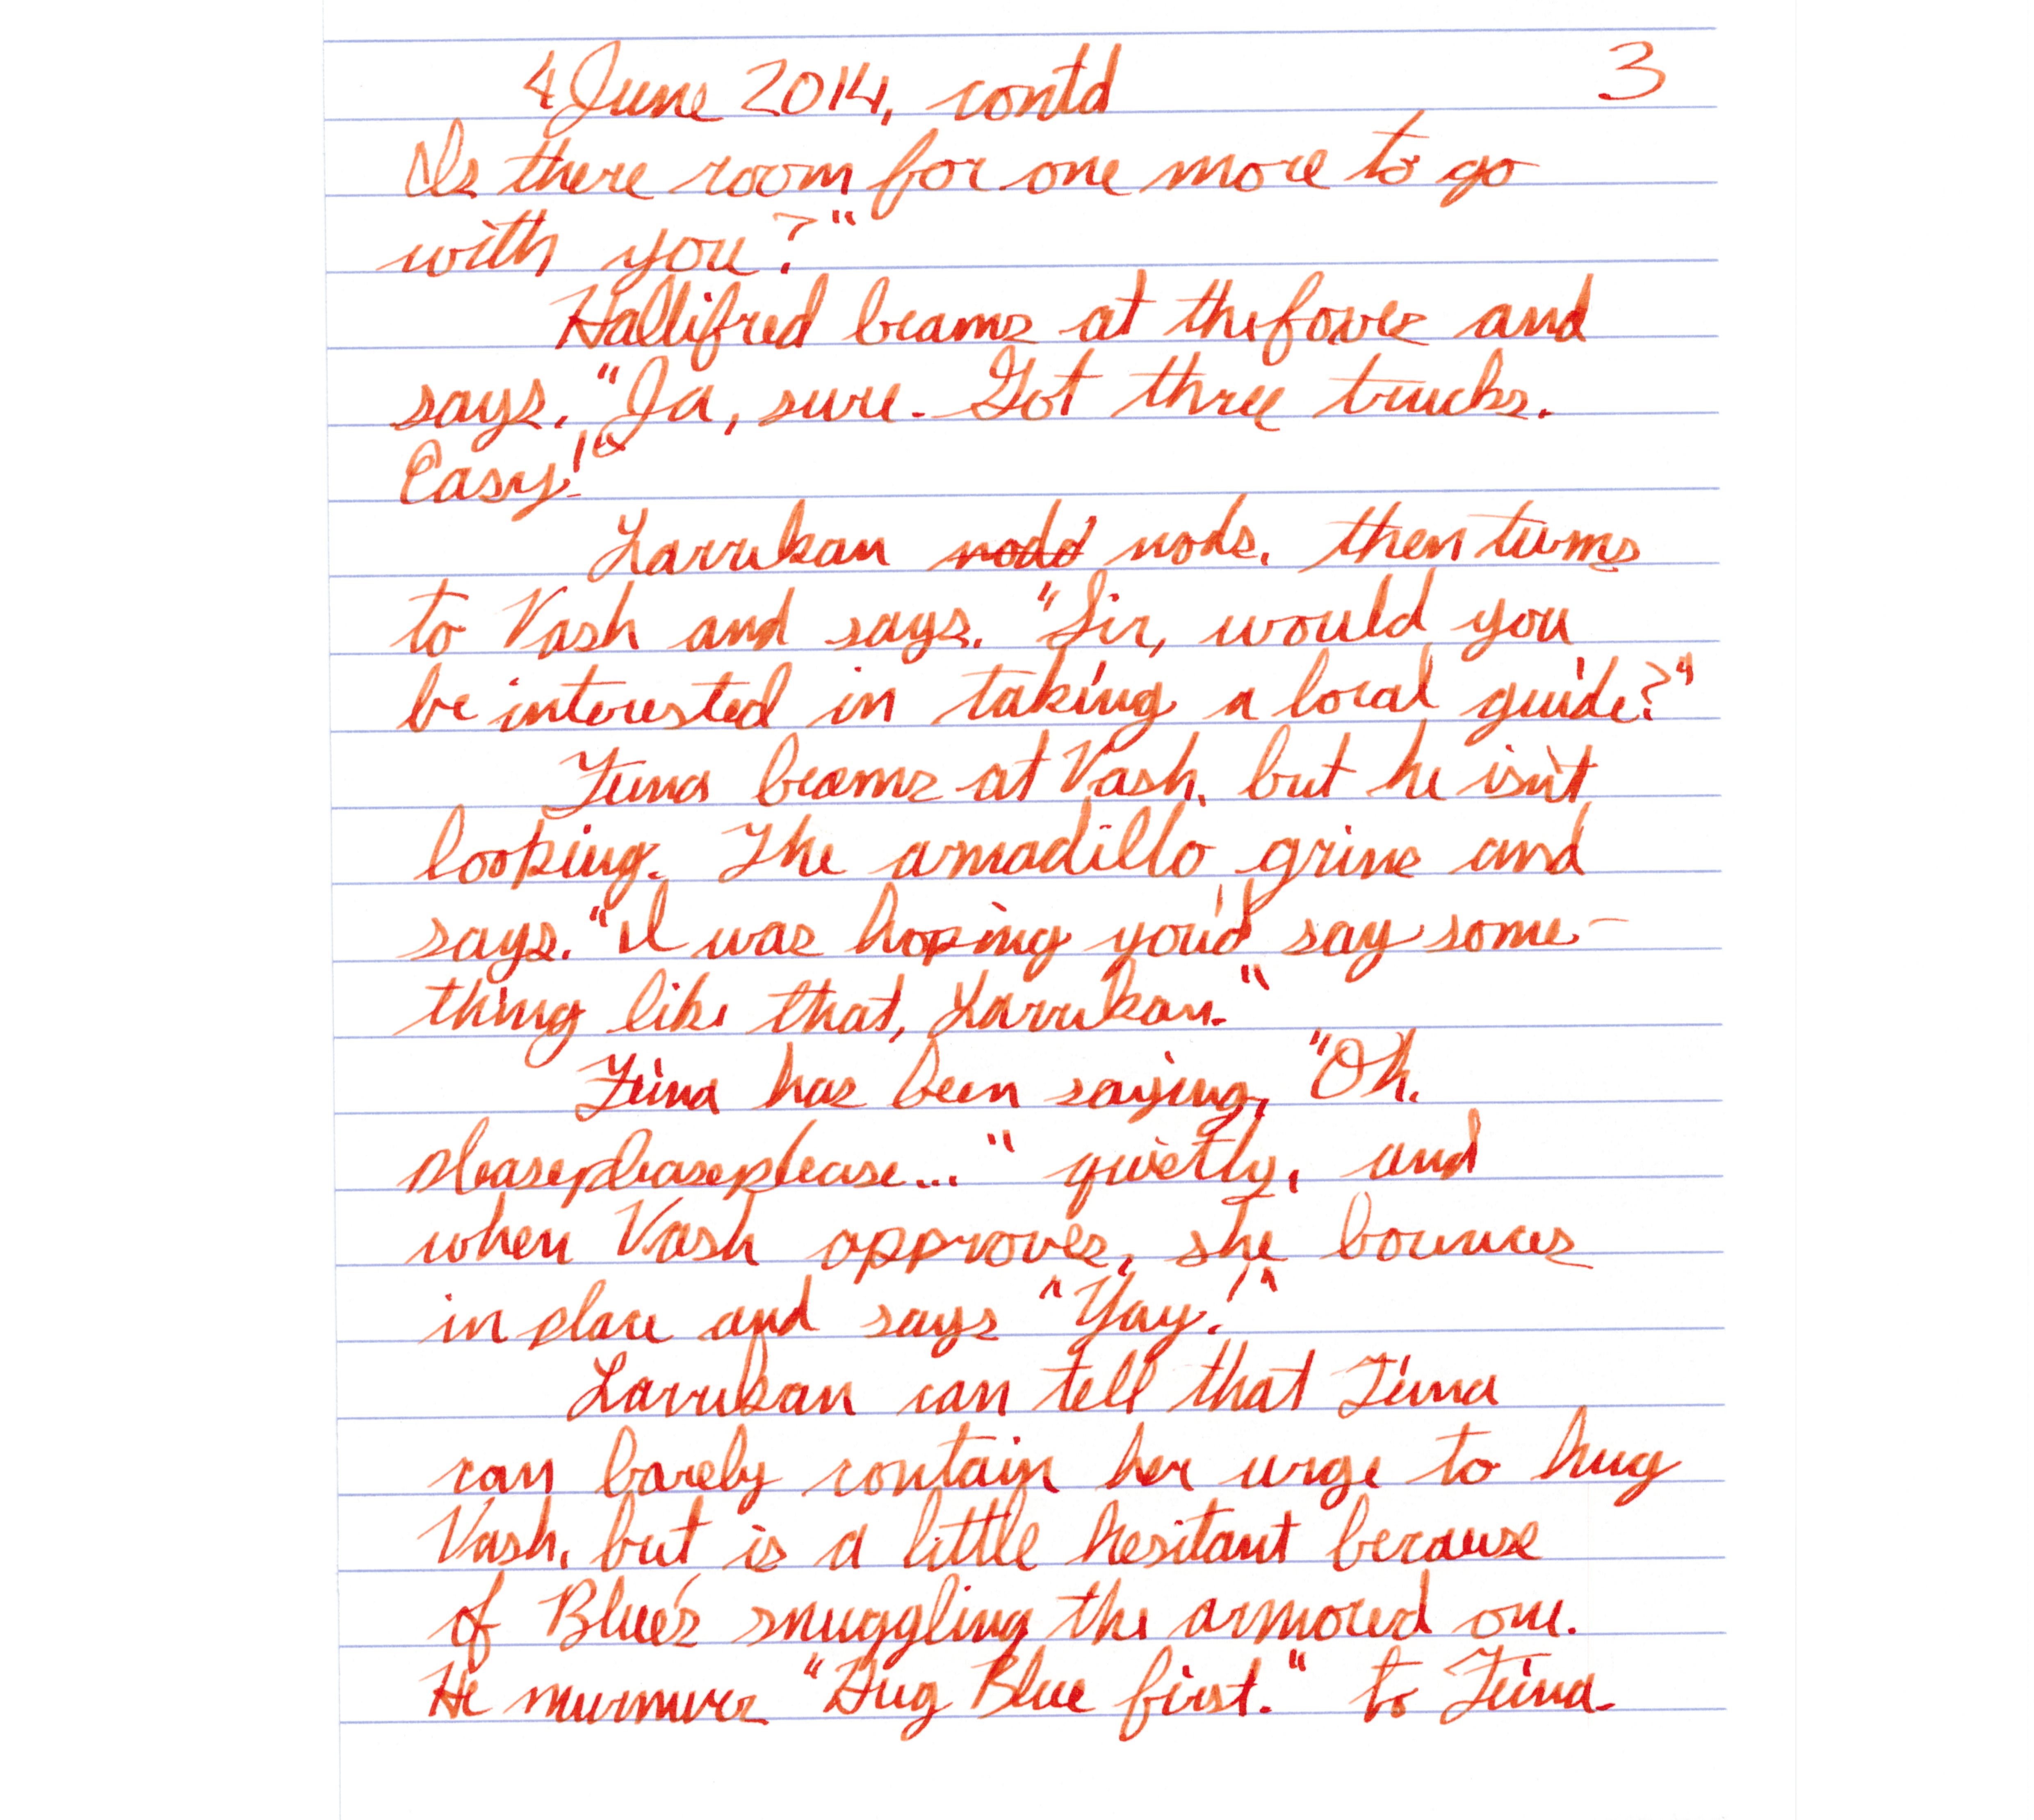 4 June 2014, contd 3
Is there room for one more to go
with you?"
Hallifred beams at the foxes and
says, "Ja, sure. Got three trucks.
Easy!"
Larrukan nodd nods, then turns
to Vash and says, "Sir, would you
be interested in taking a local guide?"
Tiina beams at Vash, but he isn't
looking. The armadillo grins and
says, "I was hoping you'd say some-
thing like that, Larrukan."
Tiina has been saying, "Oh,
pleasepleaseplease..." quietly, and
when Vash approves, she bounces
in place and says "Yay!"
Larrukan can tell that Tiina
can barely contain her urge to hug
Vash, but is a little hesitant because
of Blue's snuggling the armored one.
He murmurs "Hug Blue first." to Tiina.